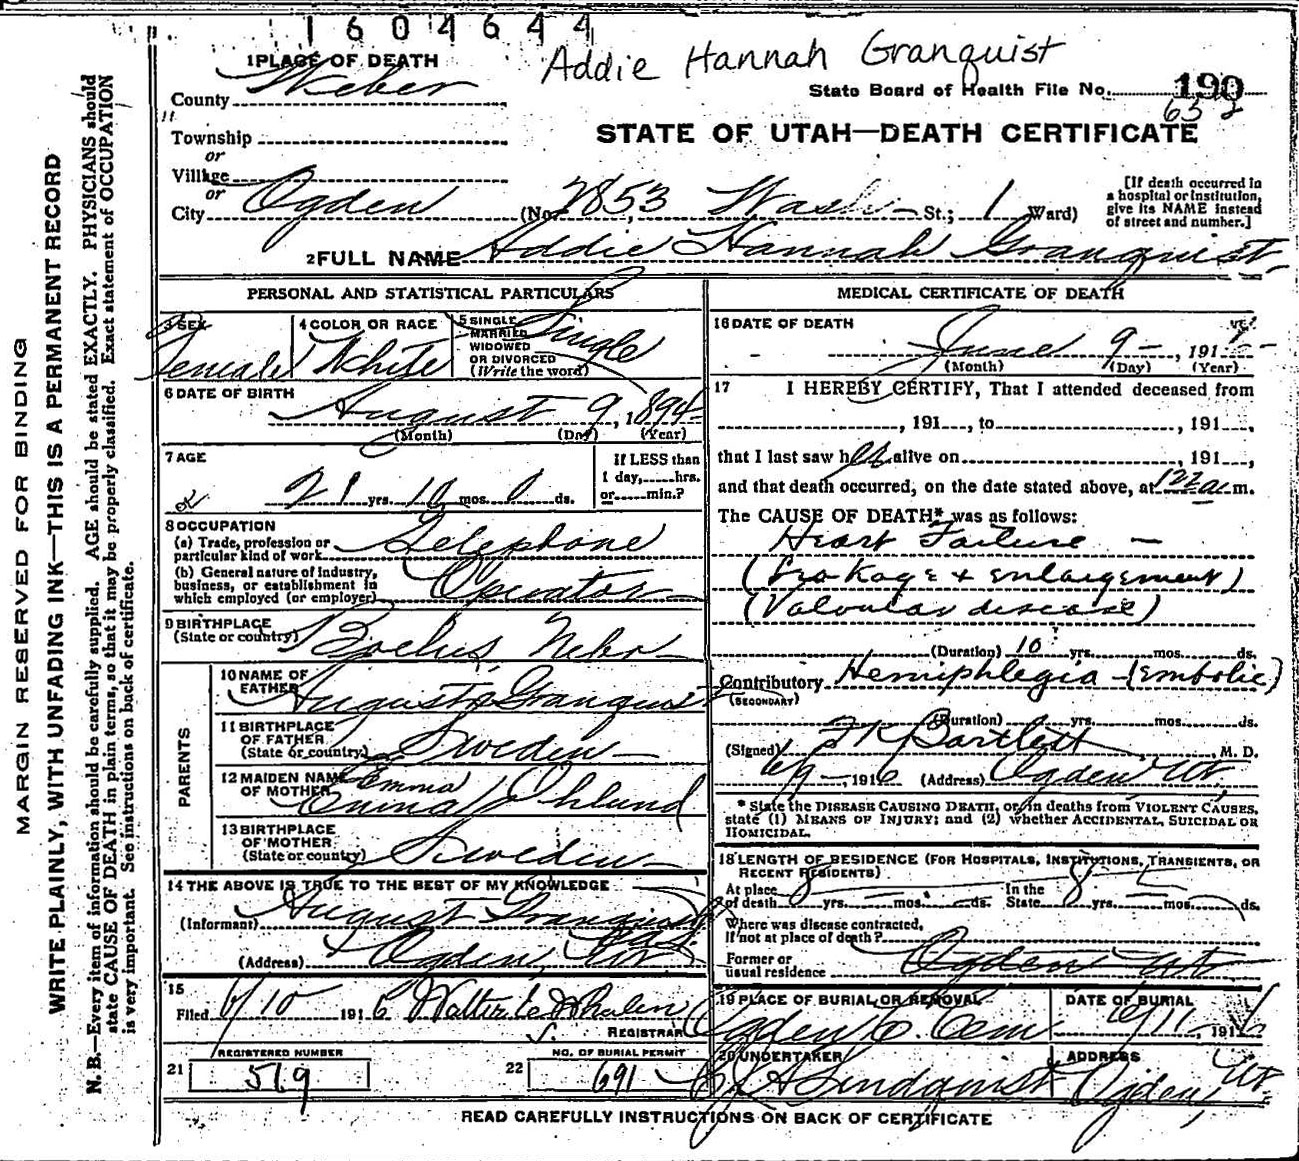 1604644
Addie Hannah Granquist
1 PLACE OF DEATH
County Weber
State Board of Health File No. 190
632
Township
or
Village
or
City Ogden (No. 2853 Wash St.; 1 Ward)
STATE OF UTAH—DEATH CERTIFICATE
[If death occurred in
a hospital or institution,
give its NAME instead
of street and number.]
2 FULL NAME Addie Hannah Granquist
PERSONAL AND STATISTICAL PARTICULARS
3 SEX
Female
4 COLOR OR RACE
White
5 SINGLE
MARRIED
WIDOWED
OR DIVORCED
(Write the word)
Single
6 DATE OF BIRTH
August 9, 1894
(Month) (Day) (Year)
7 AGE
21 yrs. 10 mos. 0 ds.
If LESS than
1 day, hrs.
or min.?
8 OCCUPATION
(a) Trade, profession or
particular kind of work Telephone
(b) General nature of industry,
business, or establishment in
which employed (or employer) Operator
9 BIRTHPLACE
(State or country) Boelus Nebr
PARENTS
10 NAME OF
FATHER August Granquist
11 BIRTHPLACE
OF FATHER
(State or country) Sweden
12 MAIDEN NAME
OF MOTHER Emma Ohlund
Emma
13 BIRTHPLACE
OF MOTHER
(State or country) Sweden
14 THE ABOVE IS TRUE TO THE BEST OF MY KNOWLEDGE
(Informant) August Granquist
(Address) Ogden, Ut
15
Filed 6/10 1916 Walter Whalen
REGISTRAR
REGISTERED NUMBER
21 519
NO. OF BURIAL PERMIT
22 691
MEDICAL CERTIFICATE OF DEATH
16 DATE OF DEATH
June 9 -, 191
(Month) (Day) (Year)
17 I HEREBY CERTIFY, That I attended deceased from
, 191 , to , 191 ,
that I last saw her alive on , 191 ,
and that death occurred, on the date stated above, at a m.
The CAUSE OF DEATH* was as follows:
Heart Failure —
(Leakage + enlargement)
(Valvular disease)
(Duration) 10 yrs. mos. ds.
Contributory Hemiphlegia - (Embolic)
(SECONDARY)
(Duration) yrs. mos. ds.
(Signed) F K Bartlett, M. D.
6/9 - 1916 (Address) Ogden Ut.
* State the DISEASE CAUSING DEATH, or, in deaths from VIOLENT CAUSES,
state (1) MEANS OF INJURY; and (2) whether ACCIDENTAL, SUICIDAL OR
HOMICIDAL.
18 LENGTH OF RESIDENCE (FOR HOSPITALS, INSTITUTIONS, TRANSIENTS, OR
RECENT RESIDENTS)
At place
of death 8 yrs. - mos. - ds.
In the
State 8 yrs. - mos. ds.
Where was disease contracted,
if not at place of death?
Former or
usual residence Ogden Ut
19 PLACE OF BURIAL OR REMOVAL
Ogden C. Cem
DATE OF BURIAL
6/11 1916
20 UNDERTAKER
A Lindquist
ADDRESS
Ogden, Ut.
READ CAREFULLY INSTRUCTIONS ON BACK OF CERTIFICATE
MARGIN RESERVED FOR BINDING
WRITE PLAINLY, WITH UNFADING INK—THIS IS A PERMANENT RECORD
N. B.—Every item of information should be carefully supplied. AGE should be stated EXACTLY. PHYSICIANS should
state CAUSE OF DEATH in plain terms, so that it may be properly classified. Exact statement of OCCUPATION
is very important. See instructions on back of certificate.